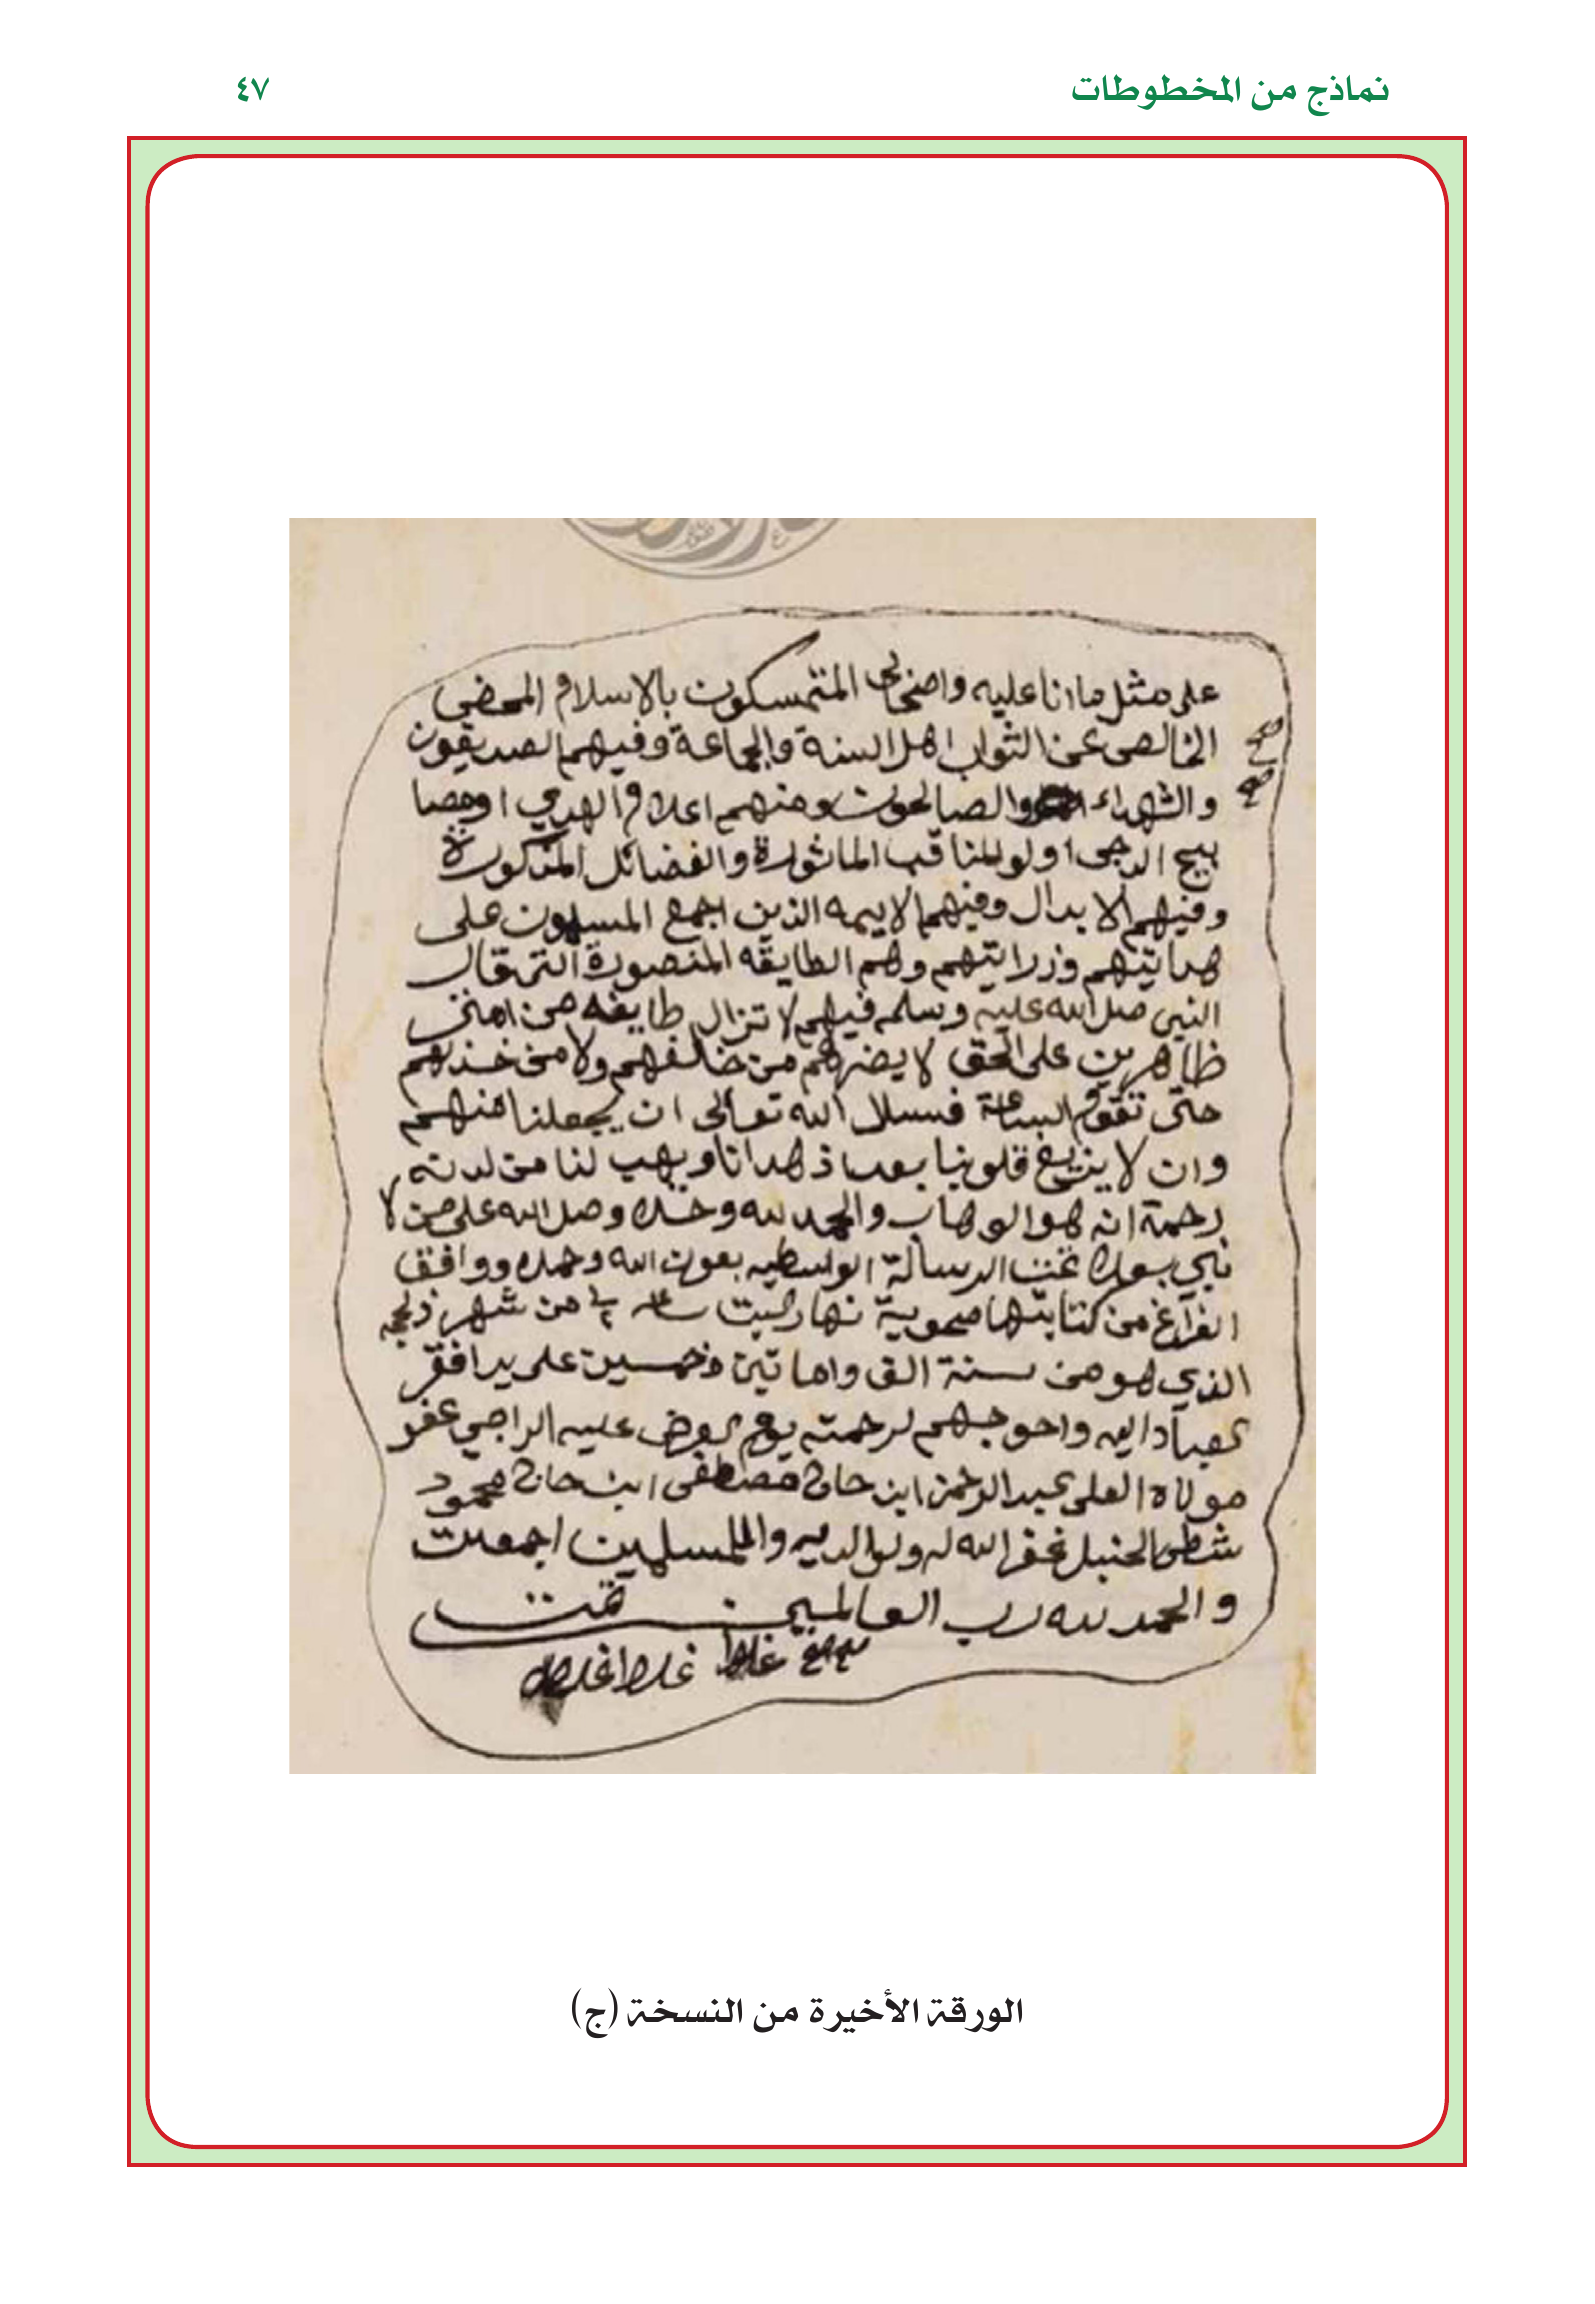 نماذج من المخطوطات
٤٧
على مثل ما انا عليه واصحابى المتمسكون بالاسلام المحضى
الخالصى عن الثواب اهل السنة والجماعة وفيهم الصديقون
والشهداء والصالحون ومنهم اعلام الهدى اومصا
بيح الدجى اولو المناقب الماثورة والفضائل المذكورة
وفيهم الابدال وفيهم الايمه الذين اجمع المسلمون على
هدايتهم وهم الطايفه المنصورة التى قال
النبي صل الله عليه وسلم فيهم لا تزال طايفه من امتى
ظاهرين على الحق لا يضرهم من خالفهم ولا من خذلهم
حتى تقوم الساعة فسسل الله تعالى ان يجعلنا منهم
وان لا يزيغ قلوبنا بعد اذ هدانا ويهب لنا من لدنه
رحمة انه هو الوهاب والحمد لله وحده وصل الله على من لا
نبي بعده تمت الرسالة الواسطيه بعون الله وحمده ووافق
الفراغ من كتابتها نهار السبت من شهر
الذي هو من سنة الف واماتين وخمسين على يد افقر
عباد الله واحوجهم لرحمته يوم يعرض عليه الراجي عفو
مولاه العلى عبد الرحمن ابن حاج مصطفى ابن حاج محمود
شطى الحنبلى غفر الله له ولوالديه والمسلمين اجمعين
والحمد لله رب العالمين تمت
غلط غلط
الورقة الأخيرة من النسخة (ج)